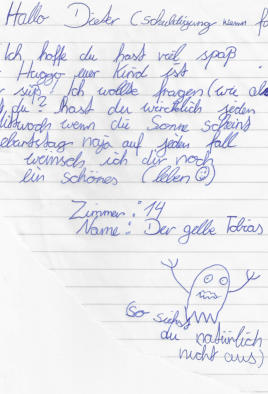 Hallo Dieter (Schuldigung wenn fa
Ich hoffe du hast viel spaß
Huggo euer Kind ist
süß! Ich wollte fragen (wie al
du? hast du wirklich jeden
ittwoch wenn die Sonne scheint
eburtstag naja auf jeden fall
weinsch ich dir noch
ein schönes (leben ☺)
Zimmer: 14
Name: Der gelbe Tobias
(so siehst
du natürlich
nicht aus)